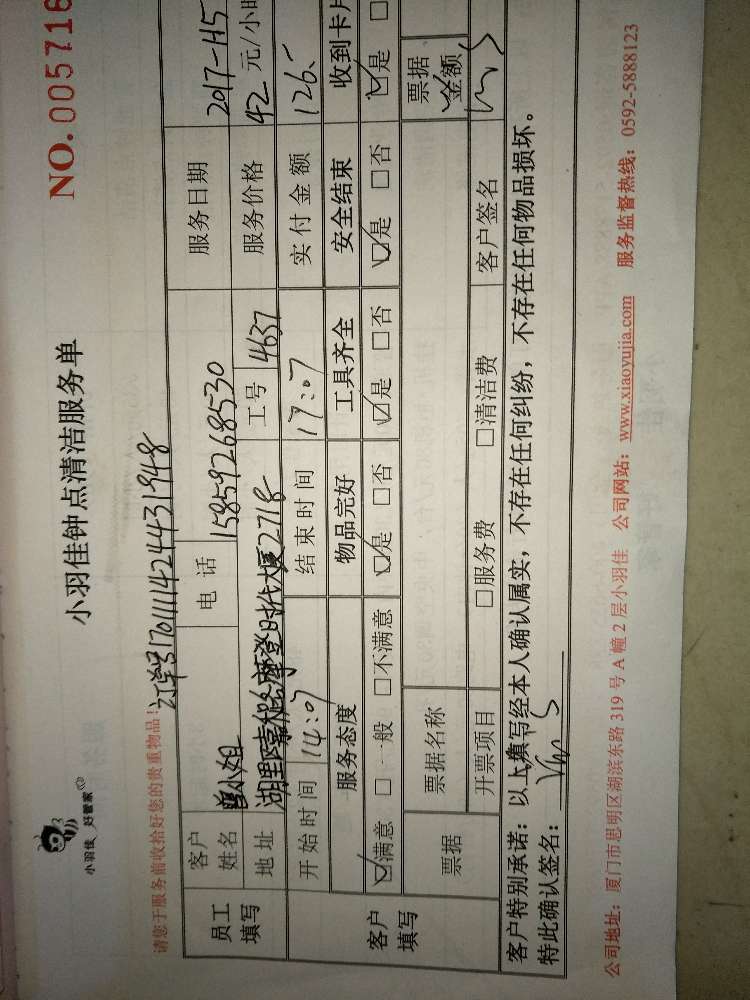 小羽佳 好管家
小羽佳钟点清洁服务单
NO.005716
请您于服务前收拾好您的贵重物品!
订单号1701111424431948
员工填写
客户姓名 曾小姐 电话 15859268530 服务日期 2017-115
地址 湖里区嘉禾路摩登时代大厦2718 工号 14637 服务价格 42元/小时
开始时间 14:07 结束时间 17:07 实付金额 126.-
客户填写
服务态度 物品完好 工具齐全 安全结束 收到卡片
☑满意 □一般 □不满意 ☑是 □否 ☑是 □否 ☑是 □否 ☑是 □
票据 票据名称 票据金额
开票项目 □服务费 □清洁费 客户签名
客户特别承诺:以上填写经本人确认属实,不存在任何纠纷,不存在任何物品损坏。
特此确认签名:
公司地址:厦门市思明区湖滨东路319号A幢2层小羽佳 公司网站:www.xiaoyujia.com 服务监督热线:0592-5888123